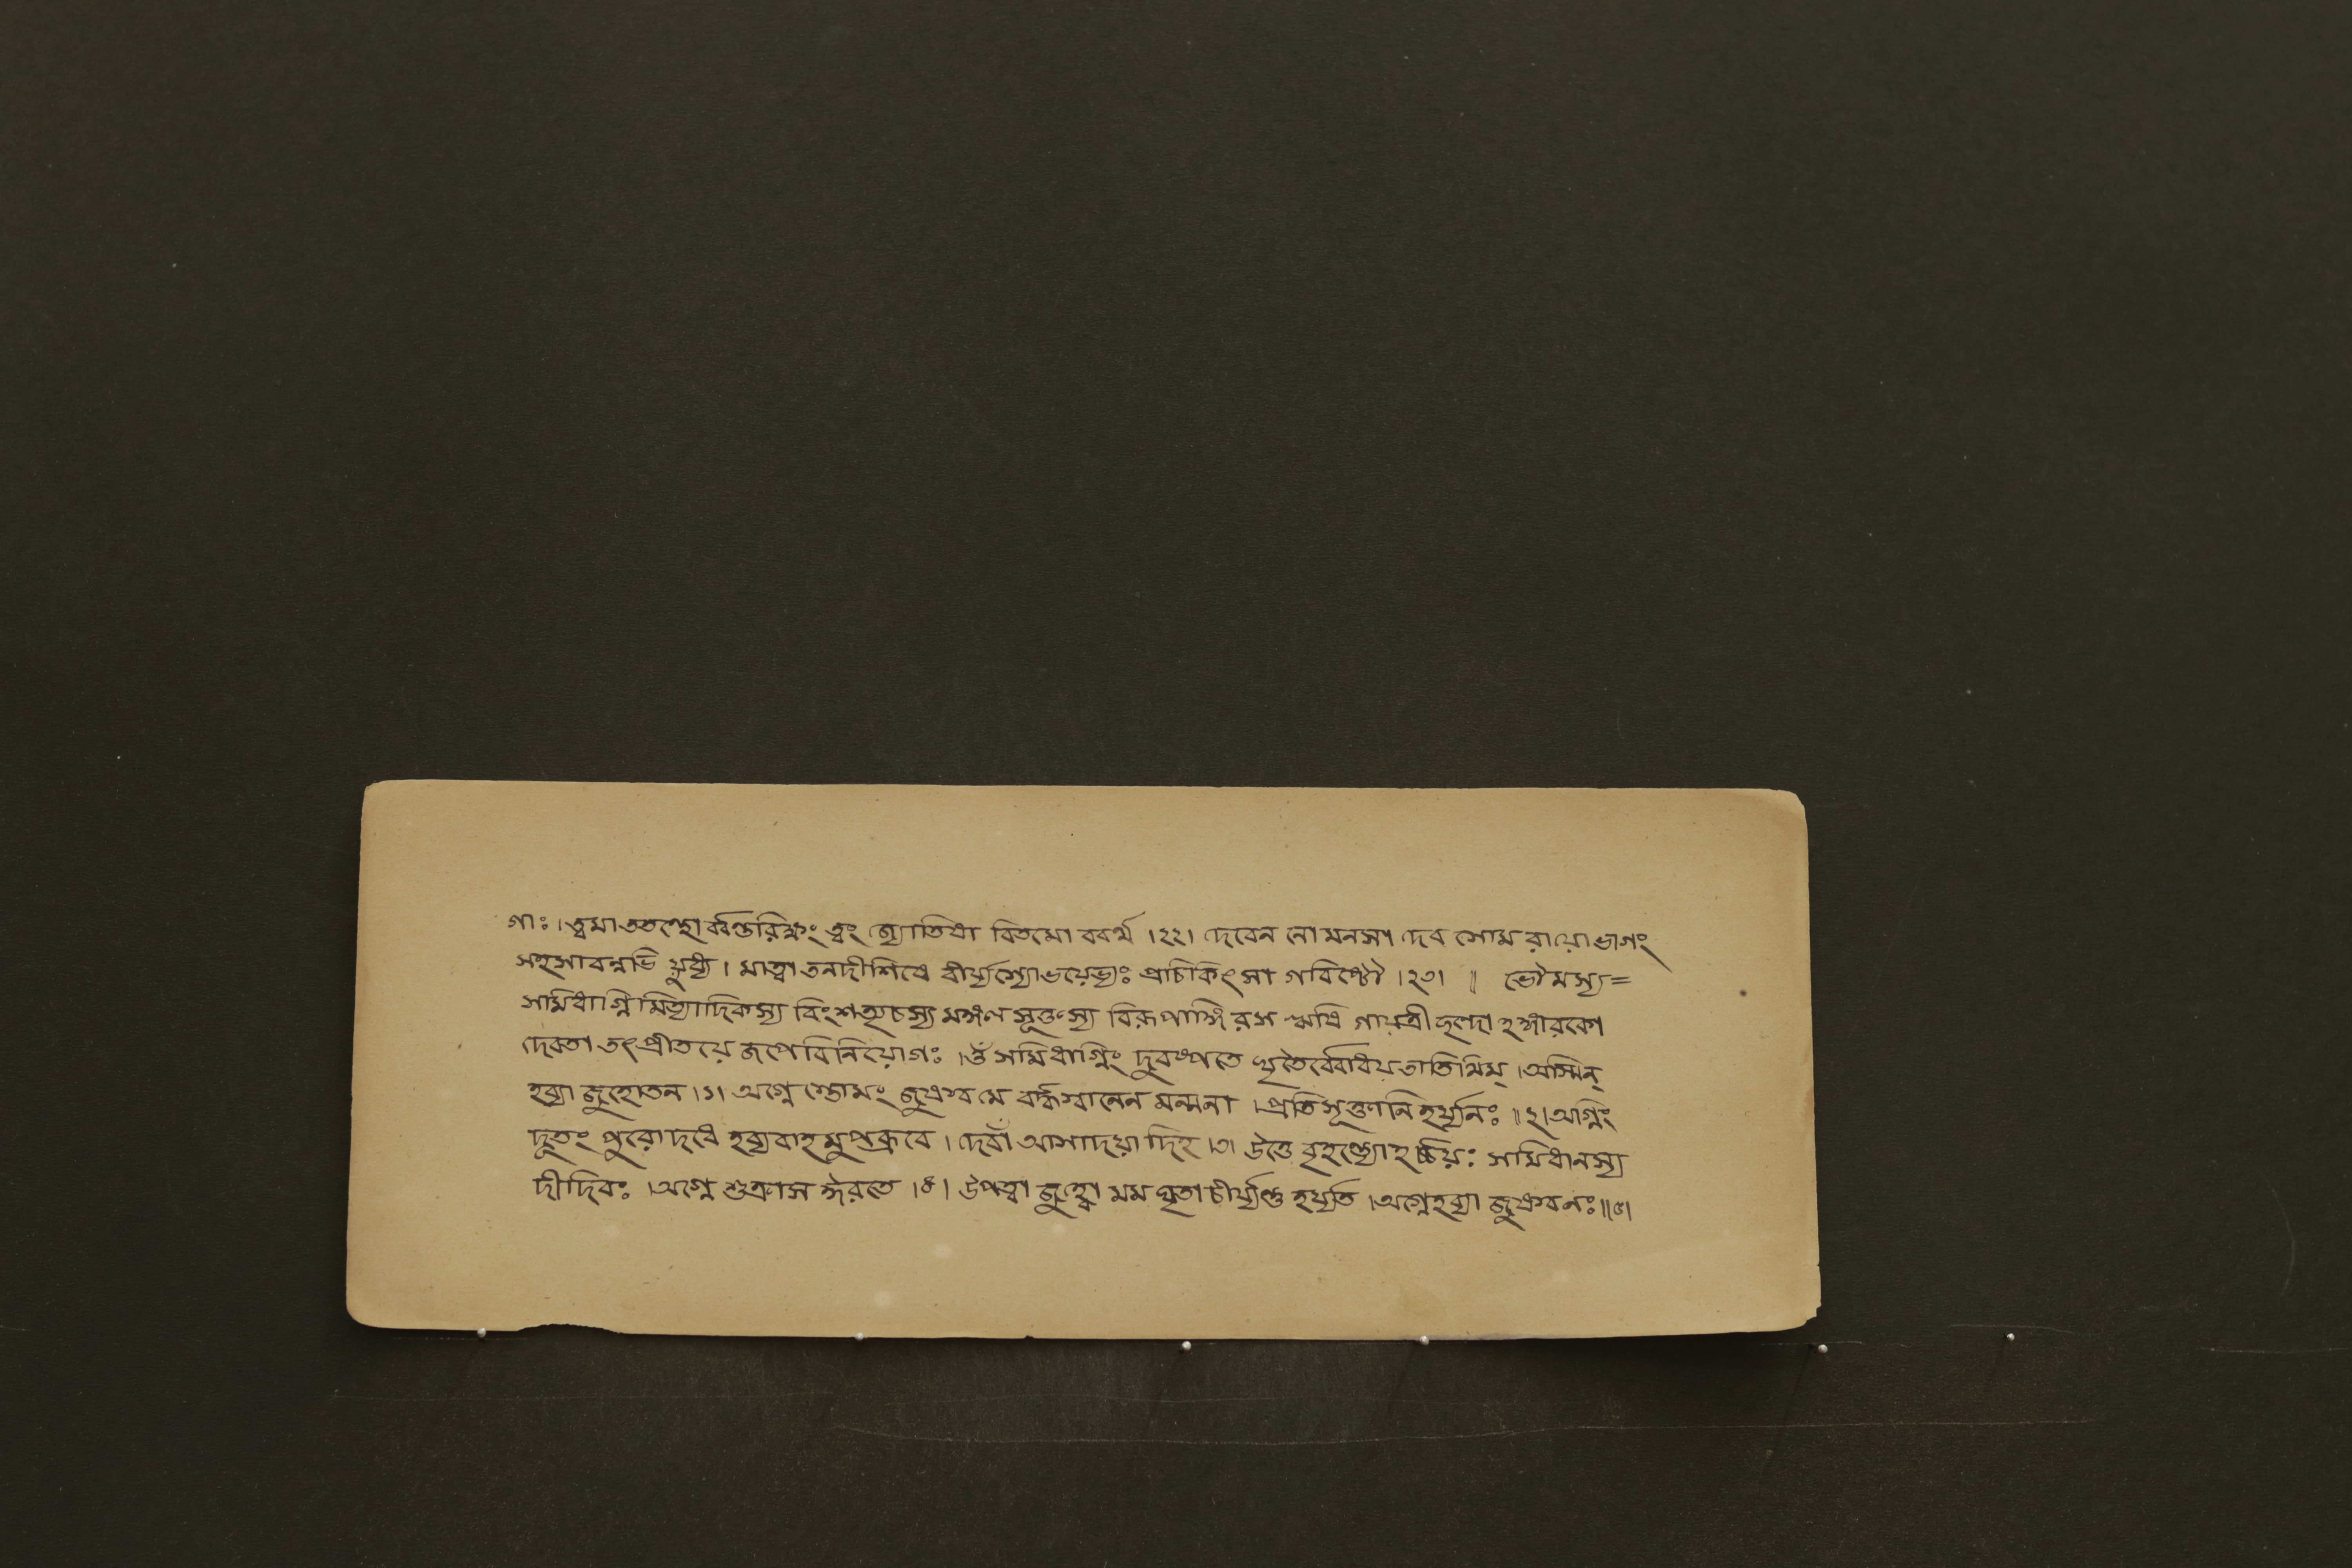 গাঃ ।ত্বমাততন্থোর্ব্বন্তরিক্ষং ত্বং জ্যোতিষা বিতমো ববর্থ ।২২। দেবেন নো মনসা দেব সোম রায়োভাগং
সহসাবন্নভি যুধ্য । মাত্বা তনদীশিষে বীর্য্যস্যোভয়েভ্যঃ প্রাচিকিৎসা গবিষ্টৌ ।২৩। ॥ ভৌমস্য=
সমিধাগ্নিমিত্যাদিকস্য বিংশত্যৃচস্য মঙ্গল সূক্তস্য বিরূপাঙ্গিরস ঋষি গায়ত্রীছন্দোহঙ্গারকো
দেবতা তৎপ্রীতয়ে জপে বিনিয়োগঃ ।ওঁ সমিধাগ্নিং দুবস্পতে ঘৃতৈর্ব্বোধয়তাতিথিম্ ।অস্মিন্
হব্যা জুহোতন ।১। অগ্নে স্তোমং জুষস্ব মে বর্দ্ধস্বানেন মন্মনা ।প্রতিসূক্তানি হর্য্যনঃ ॥২।অগ্নিং
দূতং পুরোদধে হব্যবাহমুপব্রুবে । দেবাঁ আসাদয়া দিহ ।৩। উত্তে বৃহন্ত্যোহর্চ্চয়ঃ সমিধানস্য
দীদিবঃ ।অগ্নে শুক্রাস ঈরতে ।৪। উপত্বা জুহ্বো মম ঘৃতাচীর্য্যন্তু হর্য্যতি ।অগ্নেহব্যা জুষস্বনঃ॥৫।